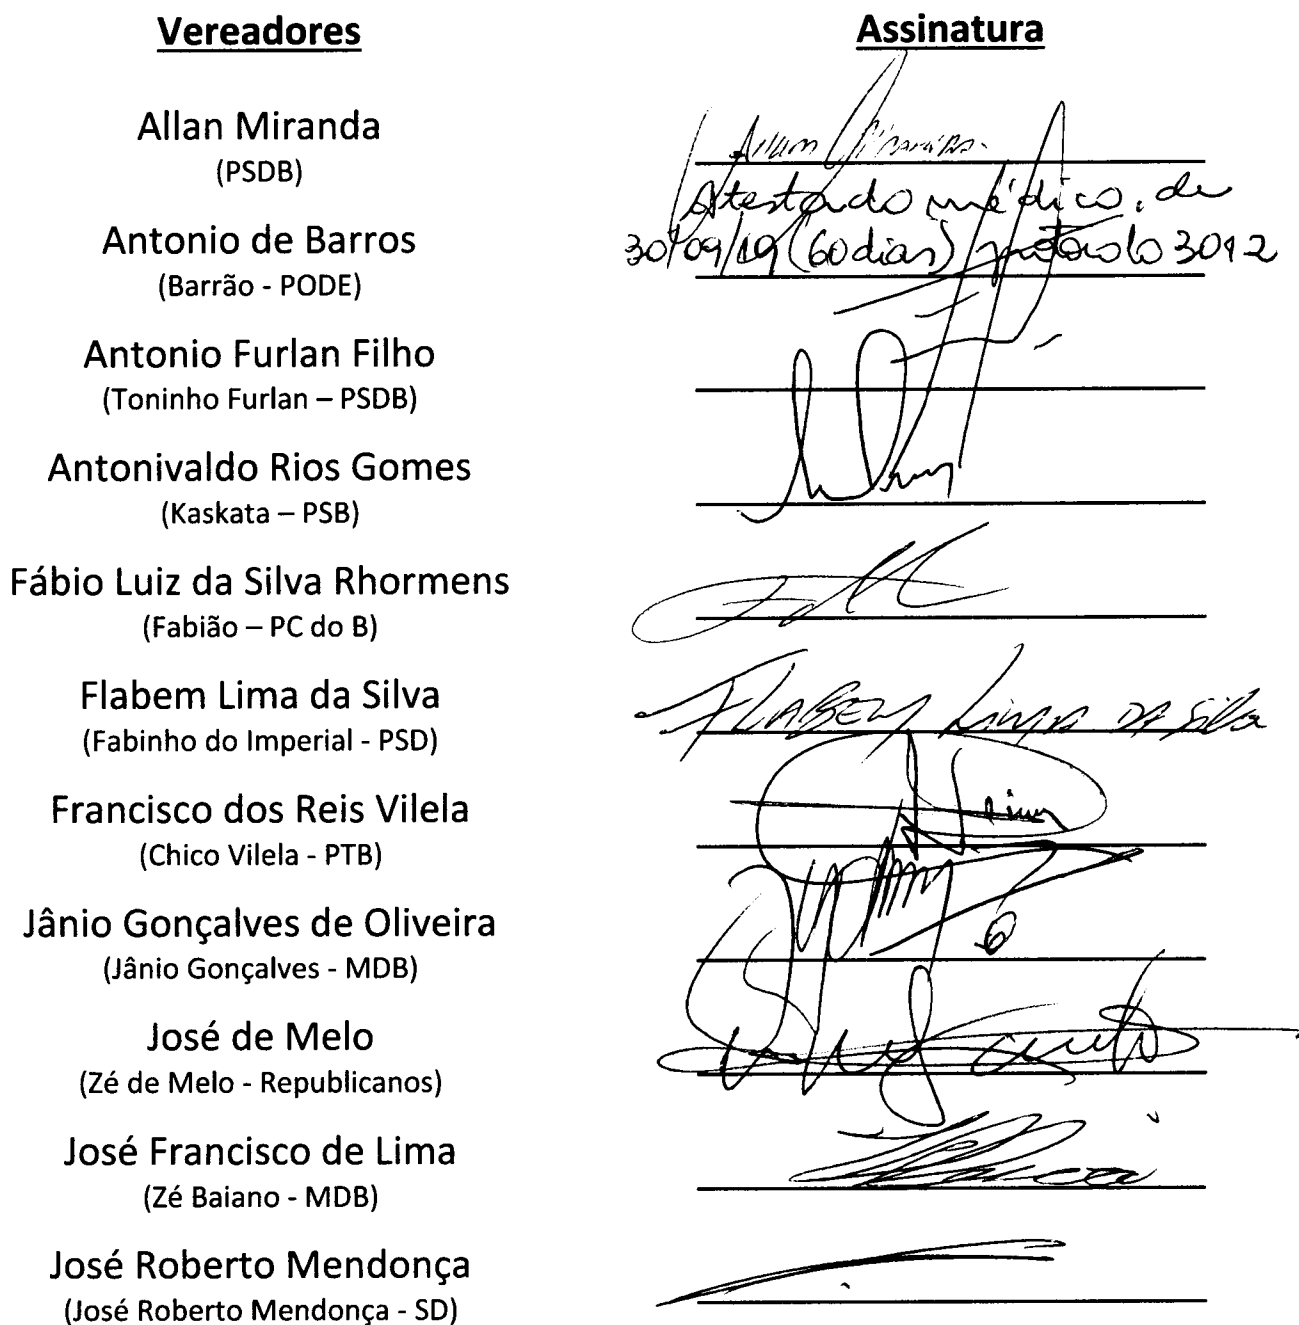 Vereadores Assinatura
Allan Miranda Allan Miranda
(PSDB)
Atestado médico, de
Antonio de Barros 30/09/19 (60 dias) protocolo 3012
(Barrão - PODE)
Antonio Furlan Filho
(Toninho Furlan – PSDB)
Antonivaldo Rios Gomes
(Kaskata – PSB)
Fábio Luiz da Silva Rhormens
(Fabião – PC do B)
Flabem Lima da Silva FLABEM Lima DA Silva
(Fabinho do Imperial - PSD)
Francisco dos Reis Vilela
(Chico Vilela - PTB)
Jânio Gonçalves de Oliveira
(Jânio Gonçalves - MDB)
José de Melo
(Zé de Melo - Republicanos)
José Francisco de Lima
(Zé Baiano - MDB)
José Roberto Mendonça
(José Roberto Mendonça - SD)